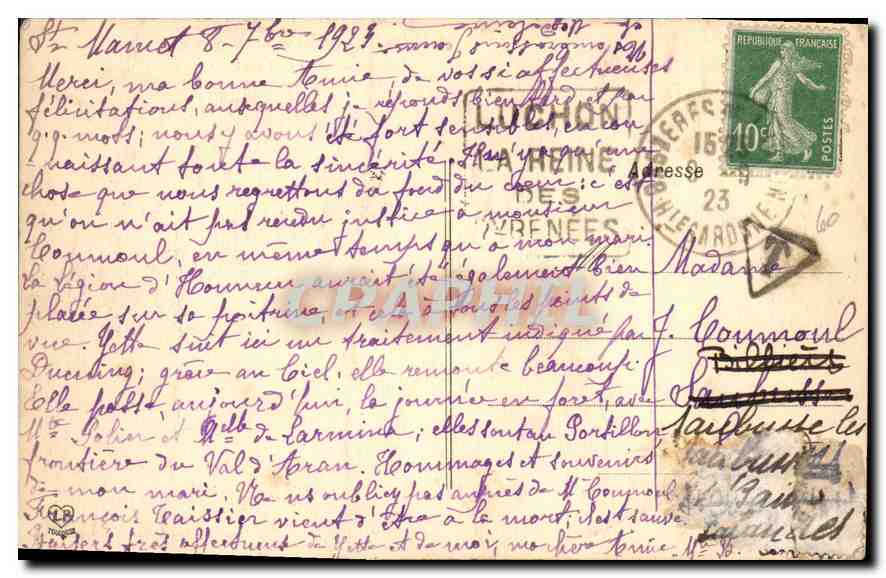 St Mamet 8-7bre 1923.
Merci, ma bonne Amie, de vos si affectueuses
félicitations, auxquelles je réponds bien tard et par
q.q. mots; nous y avons été fort sensibles, en con-
naissant toute la sincérité. Il n'y a qu'une
chose que nous regrettons du fond du cœur: c'est
qu'on n'ait pas rendu justice à monsieur
Coumoul, en même temps qu'à mon mari.
La Légion d'Honneur aurait été également bien
placée sur sa poitrine, et cela à tous les points de
vue. Yette suit ici un traitement indiqué par
Ducuing; grâce au Ciel, elle remonte beaucoup.
Elle passe, aujourd'hui, la journée en forêt, avec
Mme et Melle de Larmina; elles sont au Portillon
frontière du Val d'Aran. Hommages et souvenirs
de mon mari. Ne ns oubliez pas auprès de Mr Coumoul
François Taissier vient d'être à la mort; il est sauvé
Baisers très affectueux de Yette et de moi, ma chère Amie. M.
LUCHON
LA REINE
DES
PYRENEES
REPUBLIQUE FRANÇAISE
10c
POSTES
23
Hte GARONNE
T
60
Adresse
Madame
J. Coumoul
Saubusse
Saubusse les
Saubusse
les Bains
Landes